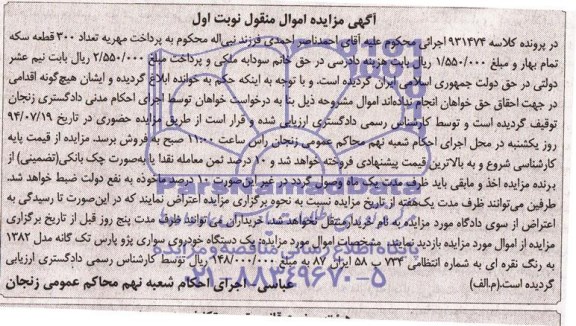 آگهی مزایده اموال منقول نوبت اول
در پرونده کلاسه ۹۳۱۴۷۴ اجرائی محکوم علیه آقای احمدناصر احمدی فرزند نبی‌اله محکوم به پرداخت مهریه تعداد ۳۰۰ قطعه سکه
تمام بهار و مبلغ ۱/۵۵۰/۰۰۰ ریال بابت هزینه دادرسی در حق خانم سودابه ملکی و پرداخت مبلغ ۲/۵۵۰/۰۰۰ ریال بابت نیم عشر
دولتی در حق دولت جمهوری اسلامی ایران گردیده است. و با توجه به اینکه حکم به خوانده ابلاغ گردیده و ایشان هیچ‌گونه اقدامی
در جهت احقاق حق خواهان انجام نداده‌اند اموال مشروحه ذیل بنا به درخواست خواهان توسط اجرای احکام مدنی دادگستری زنجان
توقیف گردیده است و توسط کارشناس رسمی دادگستری ارزیابی شده و قرار است از طریق مزایده حضوری در تاریخ ۹۴/۰۷/۱۹
روز یکشنبه در محل اجرای احکام شعبه نهم محاکم عمومی زنجان راس ساعت ۱۱:۰۰ صبح به فروش برسد. مزایده از قیمت پایه
کارشناسی شروع و به بالاترین قیمت پیشنهادی فروخته خواهد شد و ۱۰ درصد ثمن معامله نقدا یا به‌صورت چک بانکی(تضمینی) از
برنده مزایده اخذ و مابقی باید ظرف مدت یک ماه وصول گردد در غیر این‌صورت ۱۰ درصد ماخوذه به نفع دولت ضبط خواهد شد.
طرفین می‌توانند ظرف مدت یک‌هفته از تاریخ مزایده نسبت به نحوه برگزاری مزایده اعتراض نمایند که در این‌صورت تا رسیدگی به
اعتراض از سوی دادگاه مورد مزایده به نام خریدار منتقل نخواهد شد. خریداران می‌توانند ظرف مدت پنج روز قبل از تاریخ برگزاری
مزایده از اموال مورد مزایده بازدید نمایند. مشخصات اموال مورد مزایده یک دستگاه خودروی سواری پژو پارس تک گانه مدل ۱۳۸۲
به رنگ نقره ای به شماره انتظامی ۷۳۴ ب ۵۸ ایران ۸۷ به مبلغ ۱۴۸/۰۰۰/۰۰۰ ریال توسط کارشناس رسمی دادگستری ارزیابی
گردیده است.(م.الف) عباسی - اجرای احکام شعبه نهم محاکم عمومی زنجان
۰۲۱-۸۸۳۴۹۶۷۰-۵